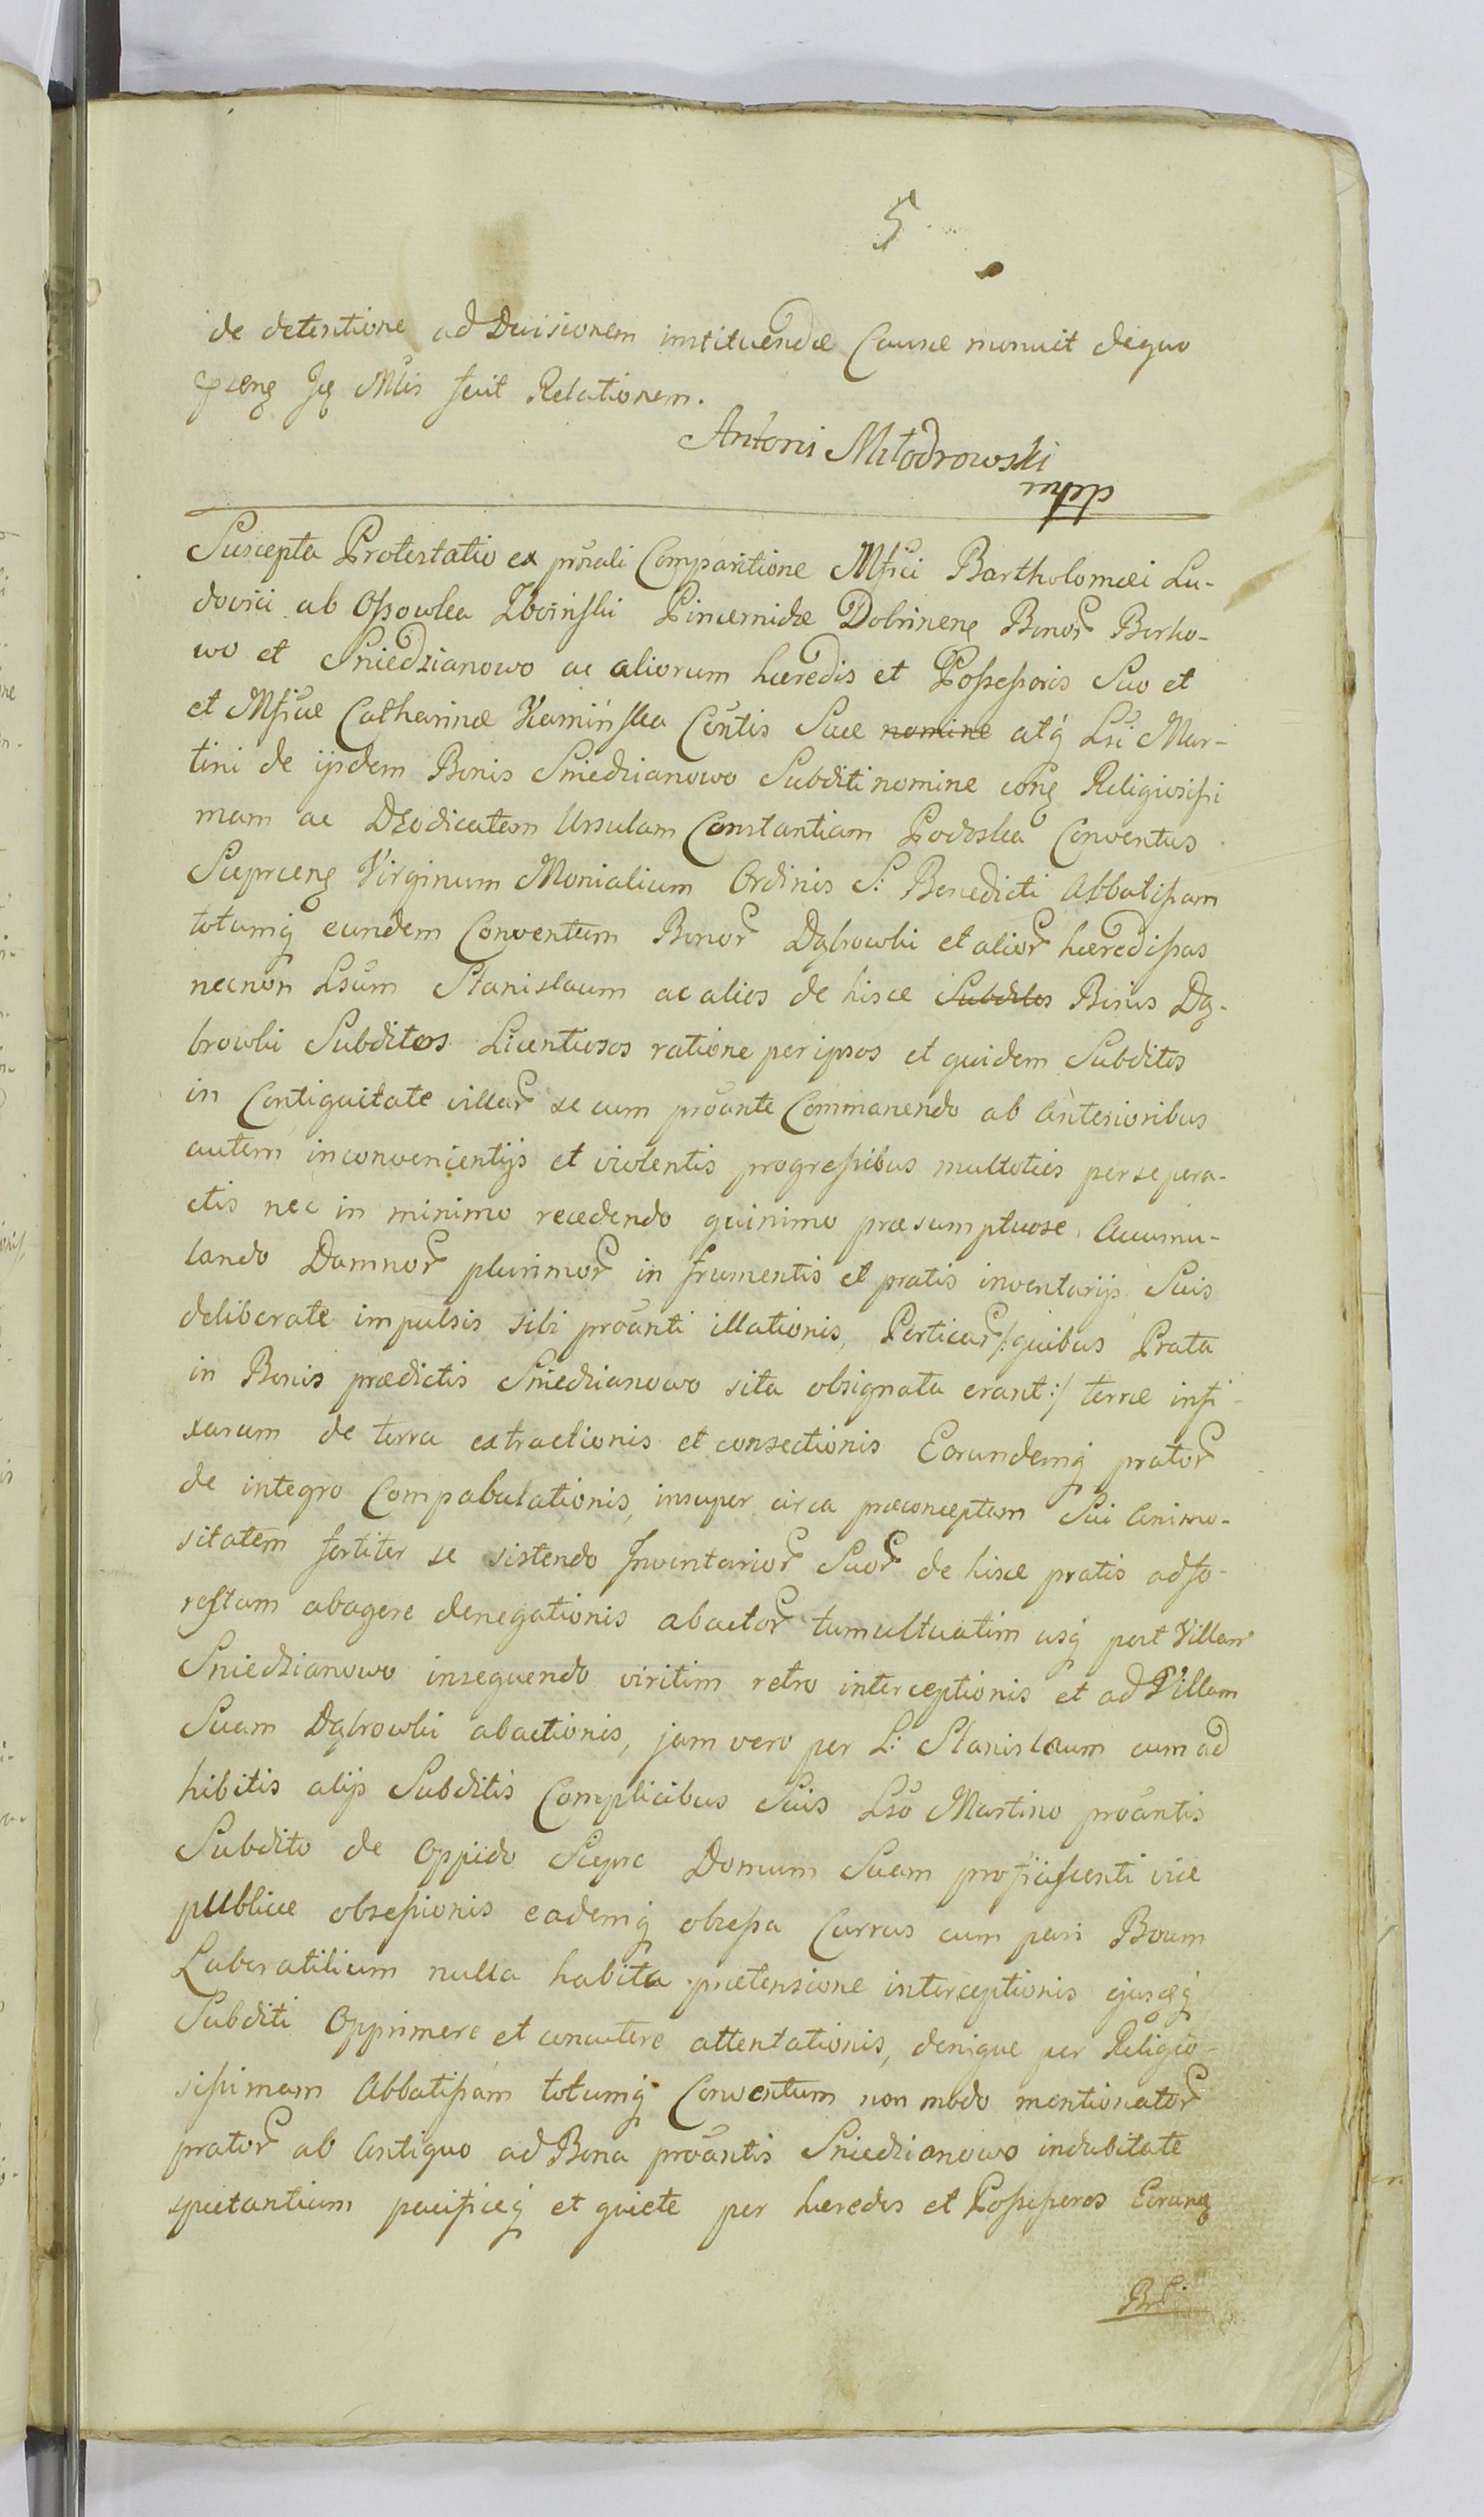 5
de detentione ad Decisionem instituendæ Causæ monuit de quo
præns Jq Mtis fecit Relationem.
Antoni Młodrowski
mpp
Suscepta Protestatio ex prńali Comparitione Mfici Bartholomæi Lu-
dovici ab Ossowka Zboinski Pincernidæ Dobrinens Bonor Borko-
wo et Sniedzianowo ac aliorum hæredis et Possessoris Suo et
et Mficæ Catharinæ Kamińska Cóntis Suæ nomine atq Lsi Mar-
tini de ijsdem Bonis Sniedzianowo Subditi nomine cons Religiosissi
mam ac DEodicatam Ursulam Constantiam Podoska Conventus
Sieprcens Virginum Monialium Ordinis S: Benedicti Abbatissam
totumq eundem Conventum Bonor Dąbrowki et alior hæredissas
necnon Lsum Stanislaum ac alios de hisce Subditos Bonis Dą-
browki Subditos Licentiosos ratione per ipsos et quidem Subditos
in Contiguitate villar se cum próante Commanendo ab Anterioribus
autem inconvenientijs et violentis progressibus multoties per se pera-
ctis nec in minimo recedendo quinimo præsumptuose Accumu-
lando Damnor plurimor in frumentis et pratis inventarijs Suis
deliberate impulsis sibi próanti illationis, Perticar /:quibus Prata
in Bonis prædictis Sniedzianowo sita obsignata erant:/ terræ infi-
xarum de terra extractionis et consectionis Earundemq prator
de integro Compabulationis, insuper circa præconceptam Sui Animo-
sitatem fortiter se sistendo Inventarior Suor de hisce pratis ad fo-
restam abagere denegationis abactor tumultuatim usq post Villam
Sniedzianowo insequendo viritim retro interceptionis et ad Villam
Suam Dąbrowki abactionis, jam vero per L: Stanislaum cum ad
hibitis alijs Subditis Complicibus Suis Lso Martino próantis
Subdito de Oppido Sieprc Domum Suam proficiscenti viæ
publicæ obsessionis eademq obsessa Currus cum pari Boum
Laboratilium nulla habita prætensione interceptionis ejusqq
Subditi Opprimere et concutere attentationis, denique per Religio-
sissimam Abbatissam totumq Conventum non modo mentionator
prator ab Antiquo ad Bona próantis Sniedzianowo indubitate
spectantium pacificeq et quiete per hæredes et Possessores Eorund